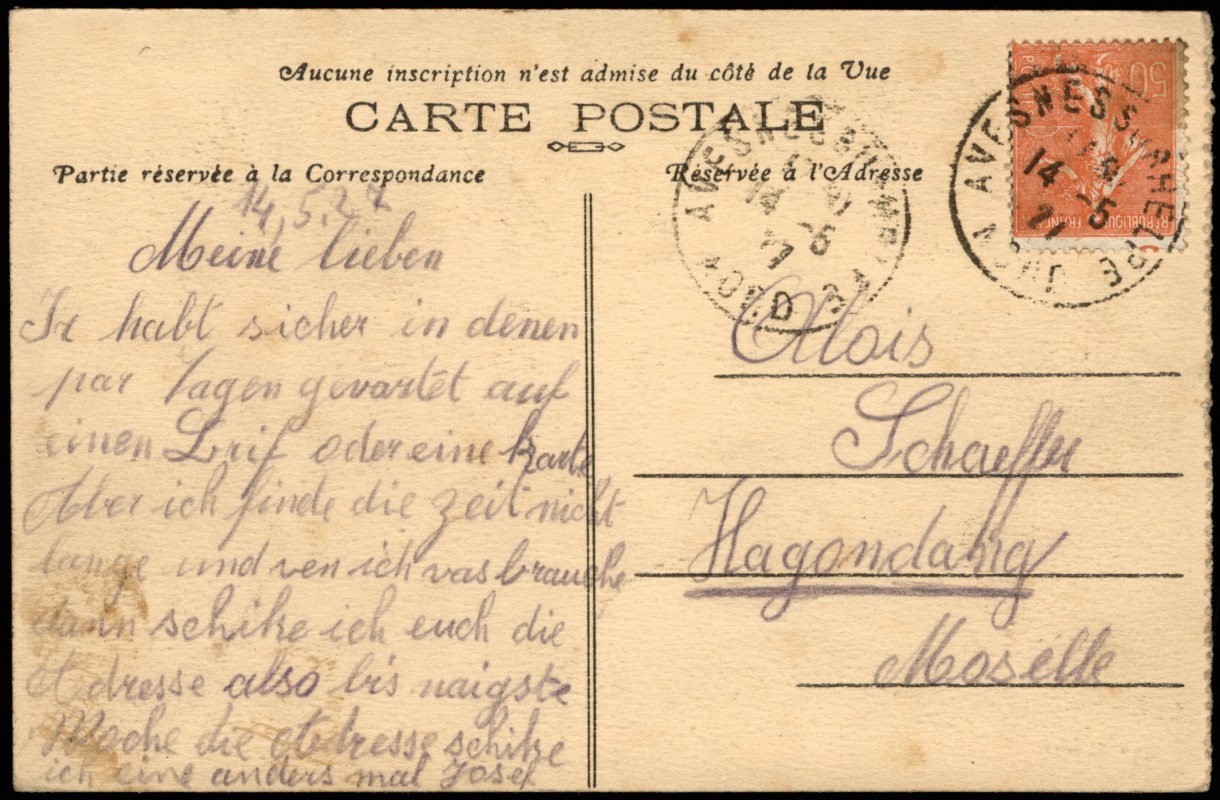 Aucune inscription n'est admise du côté de la Vue
CARTE POSTALE
Partie réservée à la Correspondance
Réservée à l'Adresse
14.5.27
Meine lieben
Ir habt sicher in denen
par Tagen gevartet auf
einen Brif oder eine karte
Aber ich finde die zeit nicht
lange und ven ich vas brauche
dann schike ich euch die
Adresse also bis naigste
Woche die Atresse schike
ich eine anders mal Josef
Alois
Schaeffer
Hagondang
Moselle
AVESNES SUR HELPE
14 -5
27
NORD
AVESNES SUR HELPE
14 -5
27
NORD
50
REPUBLIQUE FRANC